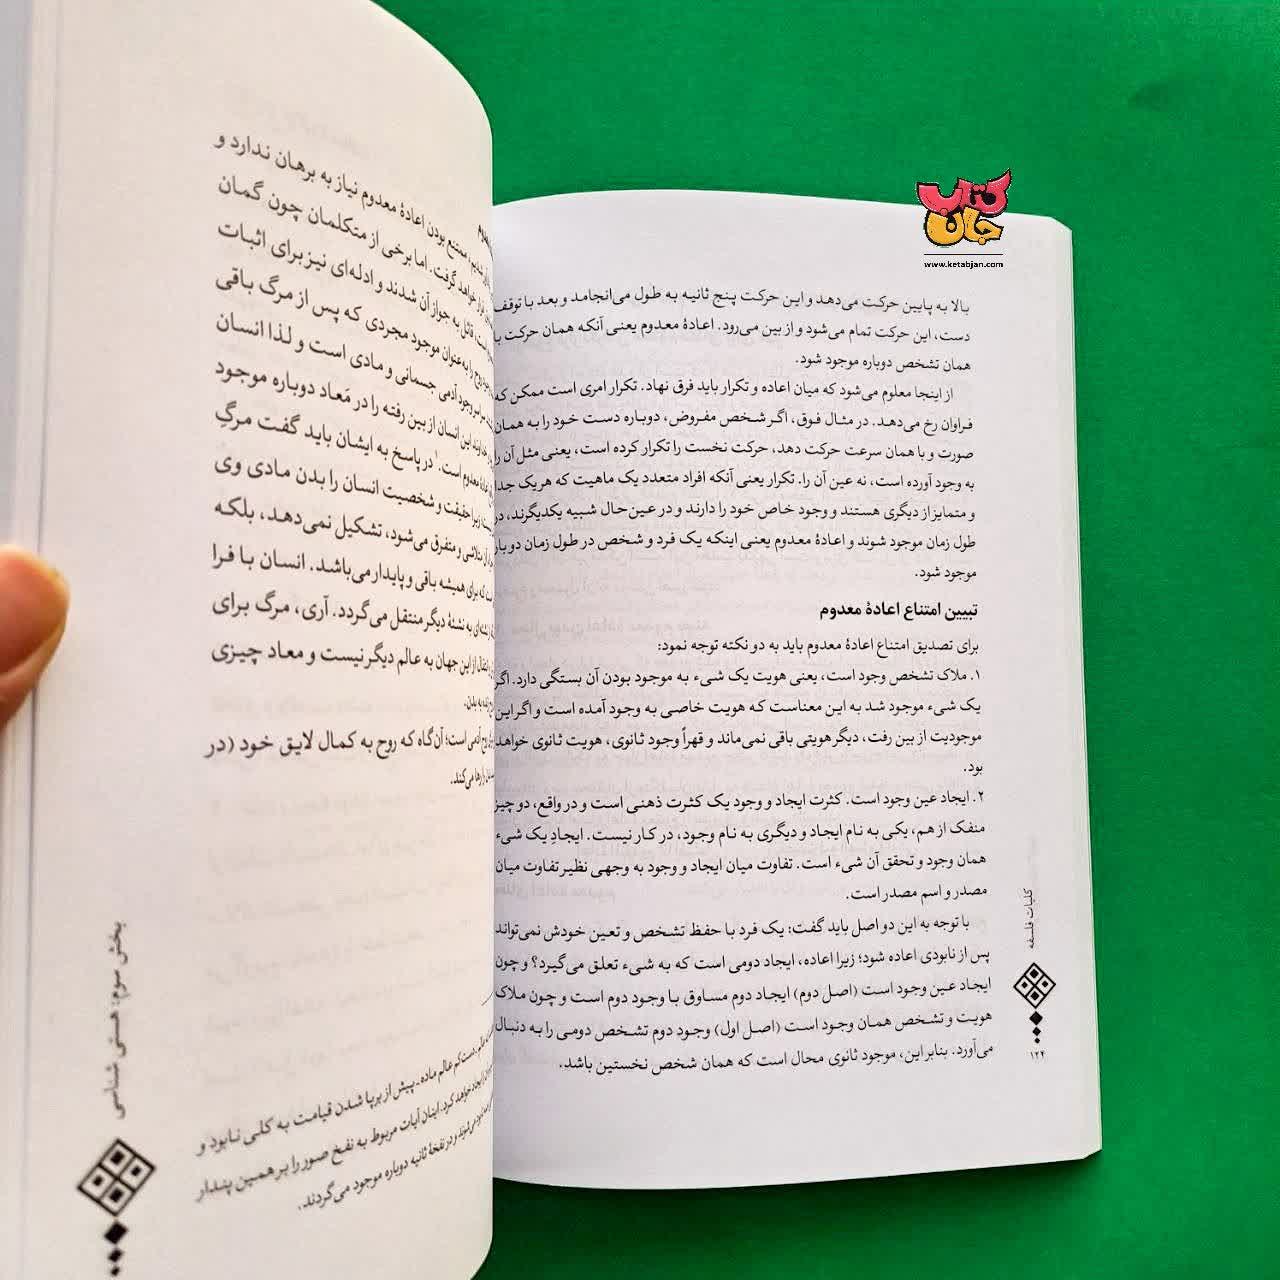 کتاب
جان
www.ketabjan.com
بالا به پایین حرکت می‌دهد و این حرکت پنج ثانیه به طول می‌انجامد و بعد با توقف
دست، این حرکت تمام می‌شود و از بین می‌رود. اعادۀ معدوم یعنی آنکه همان حرکت با
همان تشخص دوباره موجود شود.
از اینجا معلوم می‌شود که میان اعاده و تکرار باید فرق نهاد. تکرار امری است ممکن که
فراوان رخ می‌دهد. در مثال فوق، اگر شخص مفروض، دوباره دست خود را به همان
صورت و با همان سرعت حرکت دهد، حرکت نخست را تکرار کرده است، یعنی مثل آن را
به وجود آورده است، نه عین آن را. تکرار یعنی آنکه افراد متعدد یک ماهیت که هریک جدا
و متمایز از دیگری هستند و وجود خاص خود را دارند و در عین‌حال شبیه یکدیگرند، در
طول زمان موجود شوند و اعادۀ معدوم یعنی اینکه یک فرد و شخص در طول زمان دوباره
موجود شود.
تبیین امتناع اعادۀ معدوم
برای تصدیق امتناع اعادۀ معدوم باید به دو نکته توجه نمود:
۱. ملاک تشخص وجود است، یعنی هویت یک شیء به موجود بودن آن بستگی دارد. اگر
یک شیء موجود شد به این معناست که هویت خاصی به وجود آمده است و اگر این
موجودیت از بین رفت، دیگر هویتی باقی نمی‌ماند و قهراً وجود ثانوی، هویت ثانوی خواهد
بود.
۲. ایجاد عین وجود است. کثرت ایجاد و وجود یک کثرت ذهنی است و در واقع، دو چیز
منفک از هم، یکی به نام ایجاد و دیگری به نام وجود، در کار نیست. ایجادِ یک شیء
همان وجود و تحقق آن شیء است. تفاوت میان ایجاد و وجود به وجهی نظیر تفاوت میان
مصدر و اسم مصدر است.
با توجه به این دو اصل باید گفت: یک فرد با حفظ تشخص و تعین خودش نمی‌تواند
پس از نابودی اعاده شود؛ زیرا اعاده، ایجاد دومی است که به شیء تعلق می‌گیرد؟ و چون
ایجاد عین وجود است (اصل دوم) ایجاد دوم مساوق با وجود دوم است و چون ملاک
هویت و تشخص همان وجود است (اصل اول) وجود دوم تشخص دومی را به دنبال
می‌آورد. بنابراین، موجود ثانوی محال است که همان شخص نخستین باشد.
کلیات فلسفه
۱۲۴
ممتنع بودن اعادۀ معدوم نیاز به برهان ندارد و
قرار خواهد گرفت. اما برخی از متکلمان چون گمان
است، قائل به جواز آن شدند و ادله‌ای نیز برای اثبات
روح را به‌عنوان موجود مجردی که پس از مرگ باقی
وجود آدمی جسمانی و مادی است و لذا انسان
این انسان از بین رفته را در مَعاد دوباره موجود
اعادۀ معدوم است.۱ در پاسخ به ایشان باید گفت مرگِ
زیرا حقیقت و شخصیت انسان را بدن مادی وی
متلاشی و متفرق می‌شود، تشکیل نمی‌دهد، بلکه
که برای همیشه باقی و پایدار می‌باشد. انسان با فرا
نشئه‌ای به نشئۀ دیگر منتقل می‌گردد. آری، مرگ برای
انتقال از این جهان به عالم دیگر نیست و معاد چیزی
به بدن.
روح آدمی است؛ آن‌گاه که روح به کمال لایق خود (در
را رها می‌کند.
دست‌کم عالم ماده ـ پیش از برپا شدن قیامت به کلی نابود و
خواهد کرد. اینان آیات مربوط به نفخ صور را بر همین پندار
و در نفخۀ ثانیه دوباره موجود می‌گردند.
بخش سوم: هستی شناسی